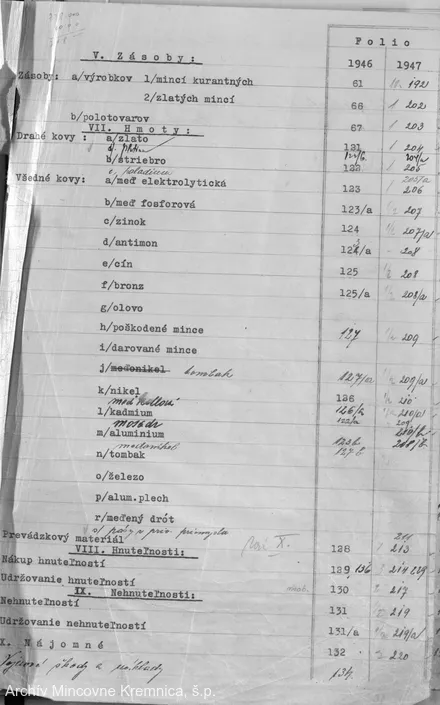 Folio
V. Zásoby: 1946 1947
Zásoby: a/výrobkov 1/mincí kurantných 61 192
2/zlatých mincí 66 1 202
b/polotovarov 67 1 203
VII. Hmoty:
Drahé kovy: a/zlato 121 1 204
b/striebro 122 1 205
c, paladium
Všedné kovy: a/meď elektrolytická 123 206
b/meď fosforová 123/a 207
c/zinok 124 207/a
d/antimon 124/a 208
e/cín 125 208
f/bronz 125/a 208/a
g/olovo
h/poškodené mince 127 209
i/darované mince
j/meďonikel tombak 127/a 209/a
k/nikel 126 210
l/kadmium 126/b 210/a
mosadz 209
m/aluminium
n/tombak 127 b
o/železo
p/alum.plech
r/meďený drót
Prevádzkový materiál 128 213
VIII. Hnuteľnosti:
Nákup hnuteľností 129, 136 214 229
Udržovanie hnuteľností 130 217
IX. Nehnuteľnosti:
Nehnuteľnosti 131 219
Udržovanie nehnuteľností 131/a 219/a
X. Nájomné 132 220
Vojnové škody a náklady 134
Archív Mincovne Kremnica, š.p.